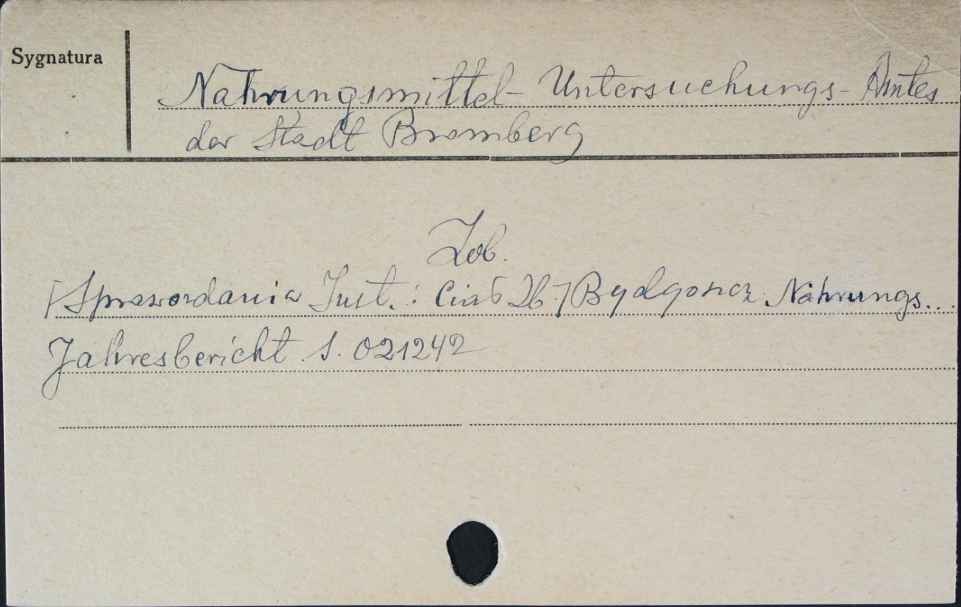 Sygnatura
Nahrungsmittel-Untersuchungs-Amtes
der Stadt Bromberg
Zob.
[Sprawozdania Inst.: Ciał Zb.] Bydgoszcz. Nahrungs...
Jahresbericht S. 021242